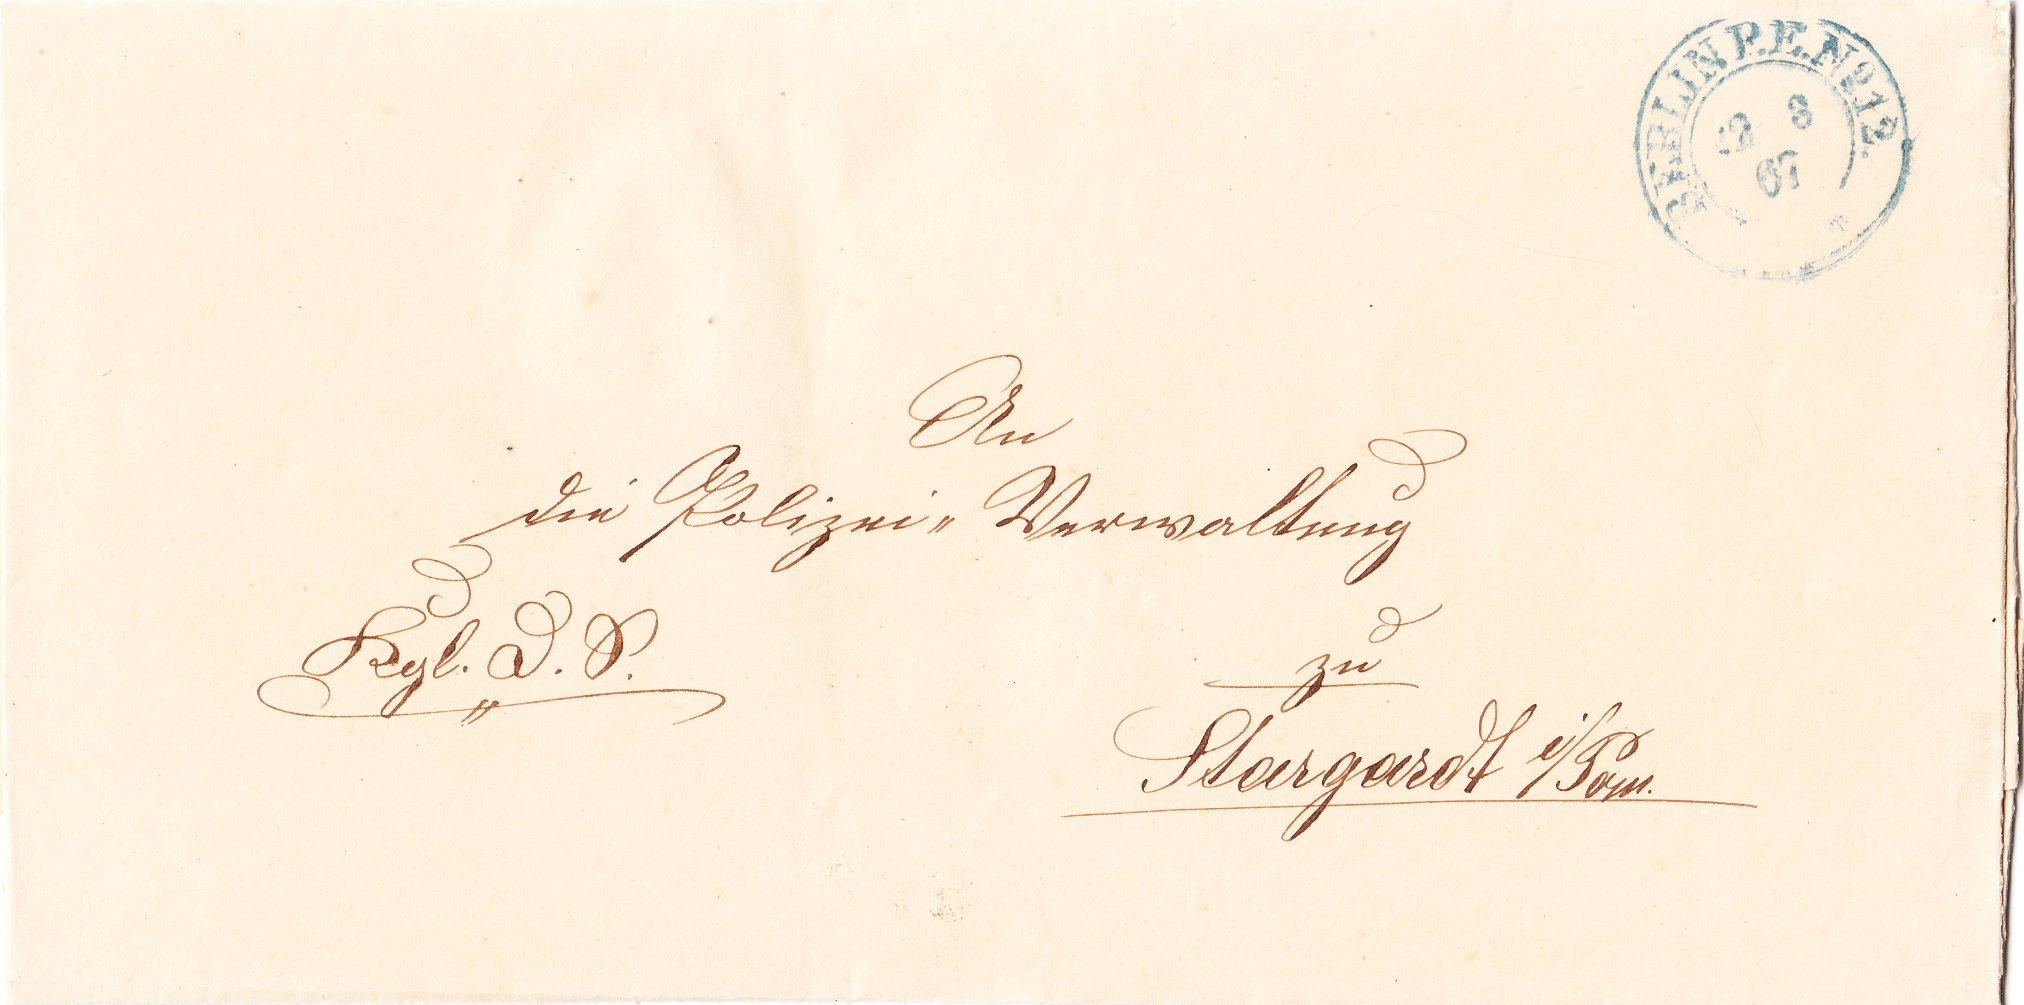 BERLIN P.E. No 12.
8
67
An
die Polizei-Verwaltung
Kgl. D. S.
zu
Stargardt i/Pom.